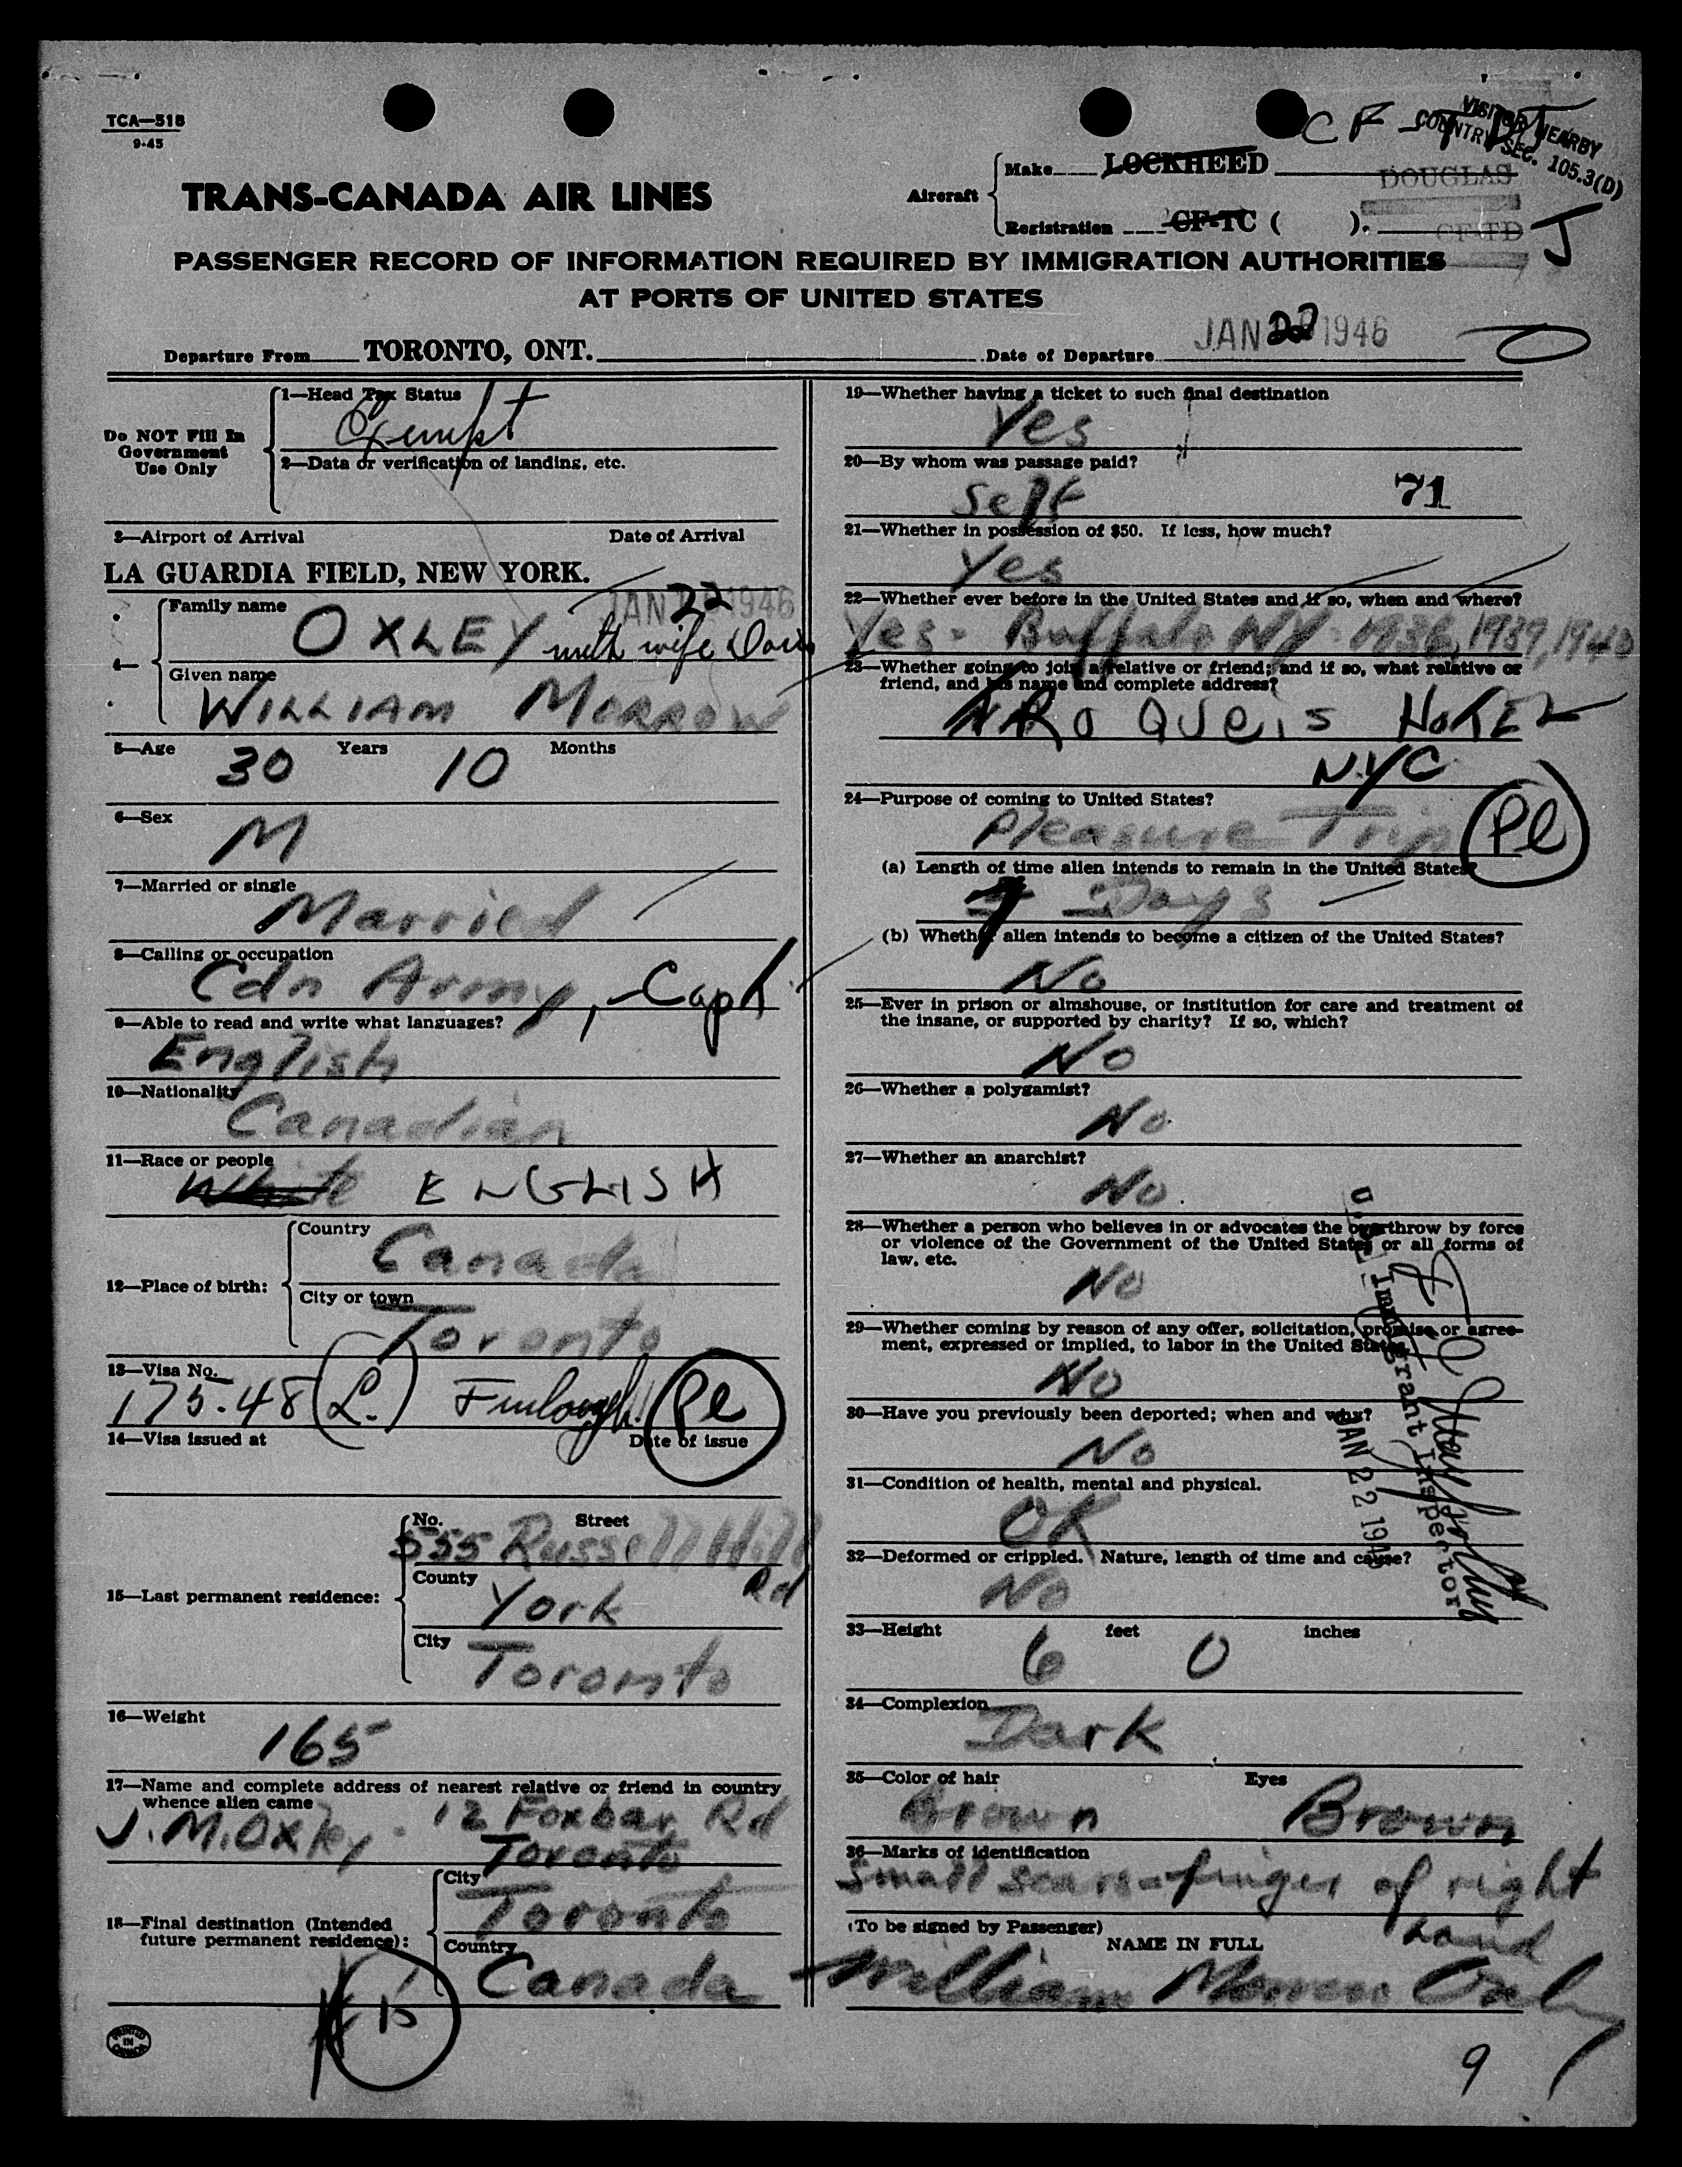 TCA—518
9-45
VISITOR NEARBY
COUNTRY SEC. 105.3(D)
TRANS-CANADA AIR LINES
Aircraft
Make LOCKHEED DOUGLAS
Registration CF-TC ( ). CF-TD J
PASSENGER RECORD OF INFORMATION REQUIRED BY IMMIGRATION AUTHORITIES
AT PORTS OF UNITED STATES
Departure From TORONTO, ONT. Date of Departure JAN 22 1946
Do NOT Fill In
Government
Use Only
1—Head Tax Status
Exempt
2—Data or verification of landing, etc.
3—Airport of Arrival Date of Arrival
LA GUARDIA FIELD, NEW YORK.
JAN 22 1946
4—
Family name
OXLEY with wife Doris
Given name
WILLIAM MORROW
5—Age 30 Years 10 Months
6—Sex
M
7—Married or single
Married
8—Calling or occupation
Cdn Army, - Capt
9—Able to read and write what languages?
English
10—Nationality
Canadian
11—Race or people
White ENGLISH
12—Place of birth:
Country
Canada
City or town
Toronto
13—Visa No.
175.48 (L.) Furlough. Pl
14—Visa issued at Date of issue
15—Last permanent residence:
No. Street
555 Russell Hill
Rd
County
York
City
Toronto
16—Weight
165
17—Name and complete address of nearest relative or friend in country
whence alien came
J. M. Oxley - 12 Foxbar Rd
Toronto
18—Final destination (Intended
future permanent residence):
City
Toronto
Country
Canada
PRINTED
IN
CANADA
19—Whether having a ticket to such final destination
Yes
20—By whom was passage paid?
Self 71
21—Whether in possession of $50. If less, how much?
Yes
22—Whether ever before in the United States and if so, when and where?
Yes - Buffalo NY - 1936, 1939, 1940
23—Whether going to join a relative or friend; and if so, what relative or
friend, and his name and complete address?
IROQUEIS HOTEL
NYC
24—Purpose of coming to United States?
Pleasure Trip Pl
(a) Length of time alien intends to remain in the United States?
7 Days
(b) Whether alien intends to become a citizen of the United States?
No
25—Ever in prison or almshouse, or institution for care and treatment of
the insane, or supported by charity? If so, which?
No
26—Whether a polygamist?
No
27—Whether an anarchist?
No
28—Whether a person who believes in or advocates the overthrow by force
or violence of the Government of the United States or all forms of
law, etc.
No
29—Whether coming by reason of any offer, solicitation, promise or agree-
ment, expressed or implied, to labor in the United States
No
30—Have you previously been deported; when and why?
No
31—Condition of health, mental and physical.
OK
32—Deformed or crippled. Nature, length of time and cause?
No
U.S. Immigrant Inspector
JAN 22 1946
33—Height 6 feet 0 inches
34—Complexion
Dark
35—Color of hair Eyes
Brown Brown
36—Marks of identification
Small scars - finger of right
hand
(To be signed by Passenger)
NAME IN FULL
William Morrow Oxley
9